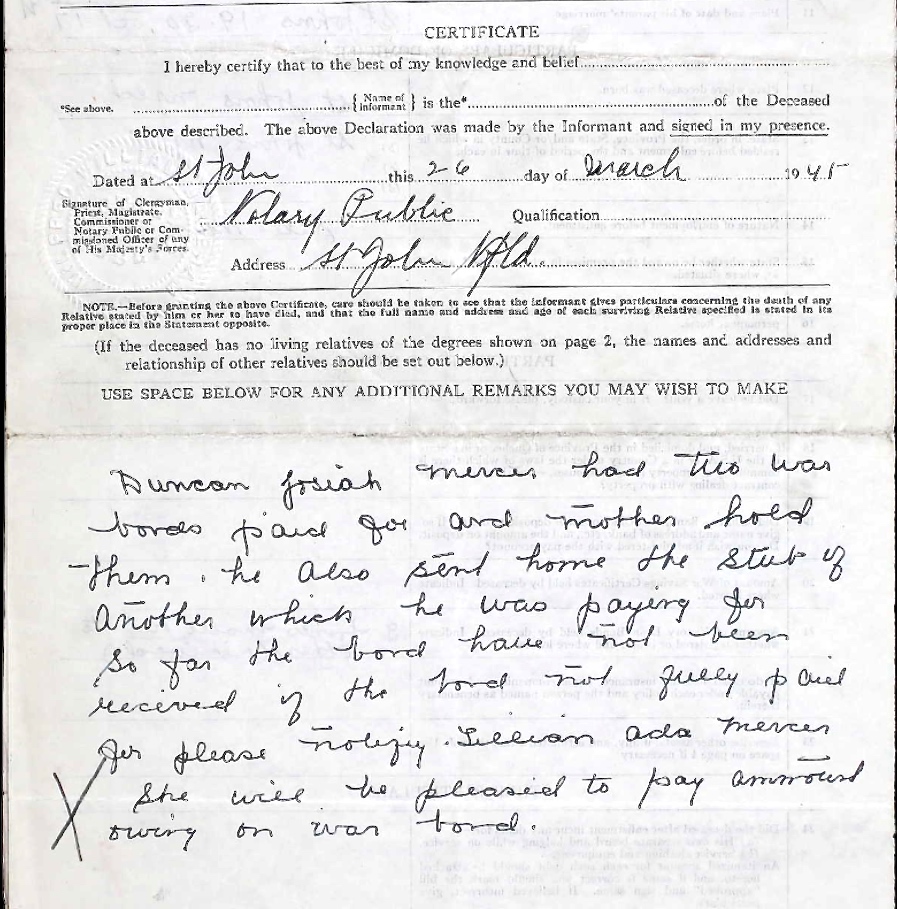 CERTIFICATE
I hereby certify that to the best of my knowledge and belief
*See above. { Name of Informant } is the* of the Deceased
above described. The above Declaration was made by the Informant and signed in my presence.
Dated at St John this 26 day of March 1945
Signature of Clergyman,
Priest, Magistrate,
Commissioner or
Notary Public or Com-
missioned Officer of any
of His Majesty's Forces.
Notary Public Qualification
Address St John Nfld.
NOTE.—Before granting the above Certificate, care should be taken to see that the informant gives particulars concerning the death of any
Relative stated by him or her to have died, and that the full name and address and age of each surviving Relative specified is stated in its
proper place in the Statement opposite.
(If the deceased has no living relatives of the degrees shown on page 2, the names and addresses and
relationship of other relatives should be set out below.)
USE SPACE BELOW FOR ANY ADDITIONAL REMARKS YOU MAY WISH TO MAKE
Duncan Josiah Mercer had two war
bords paid for and mother hold
them. he also sent home the stub of
another which he was paying for
so far the bord have not been
received if the bord not fully paid
for please notify. Lillian ada Mercer
X She will be pleased to pay ammount
owing on war bord.